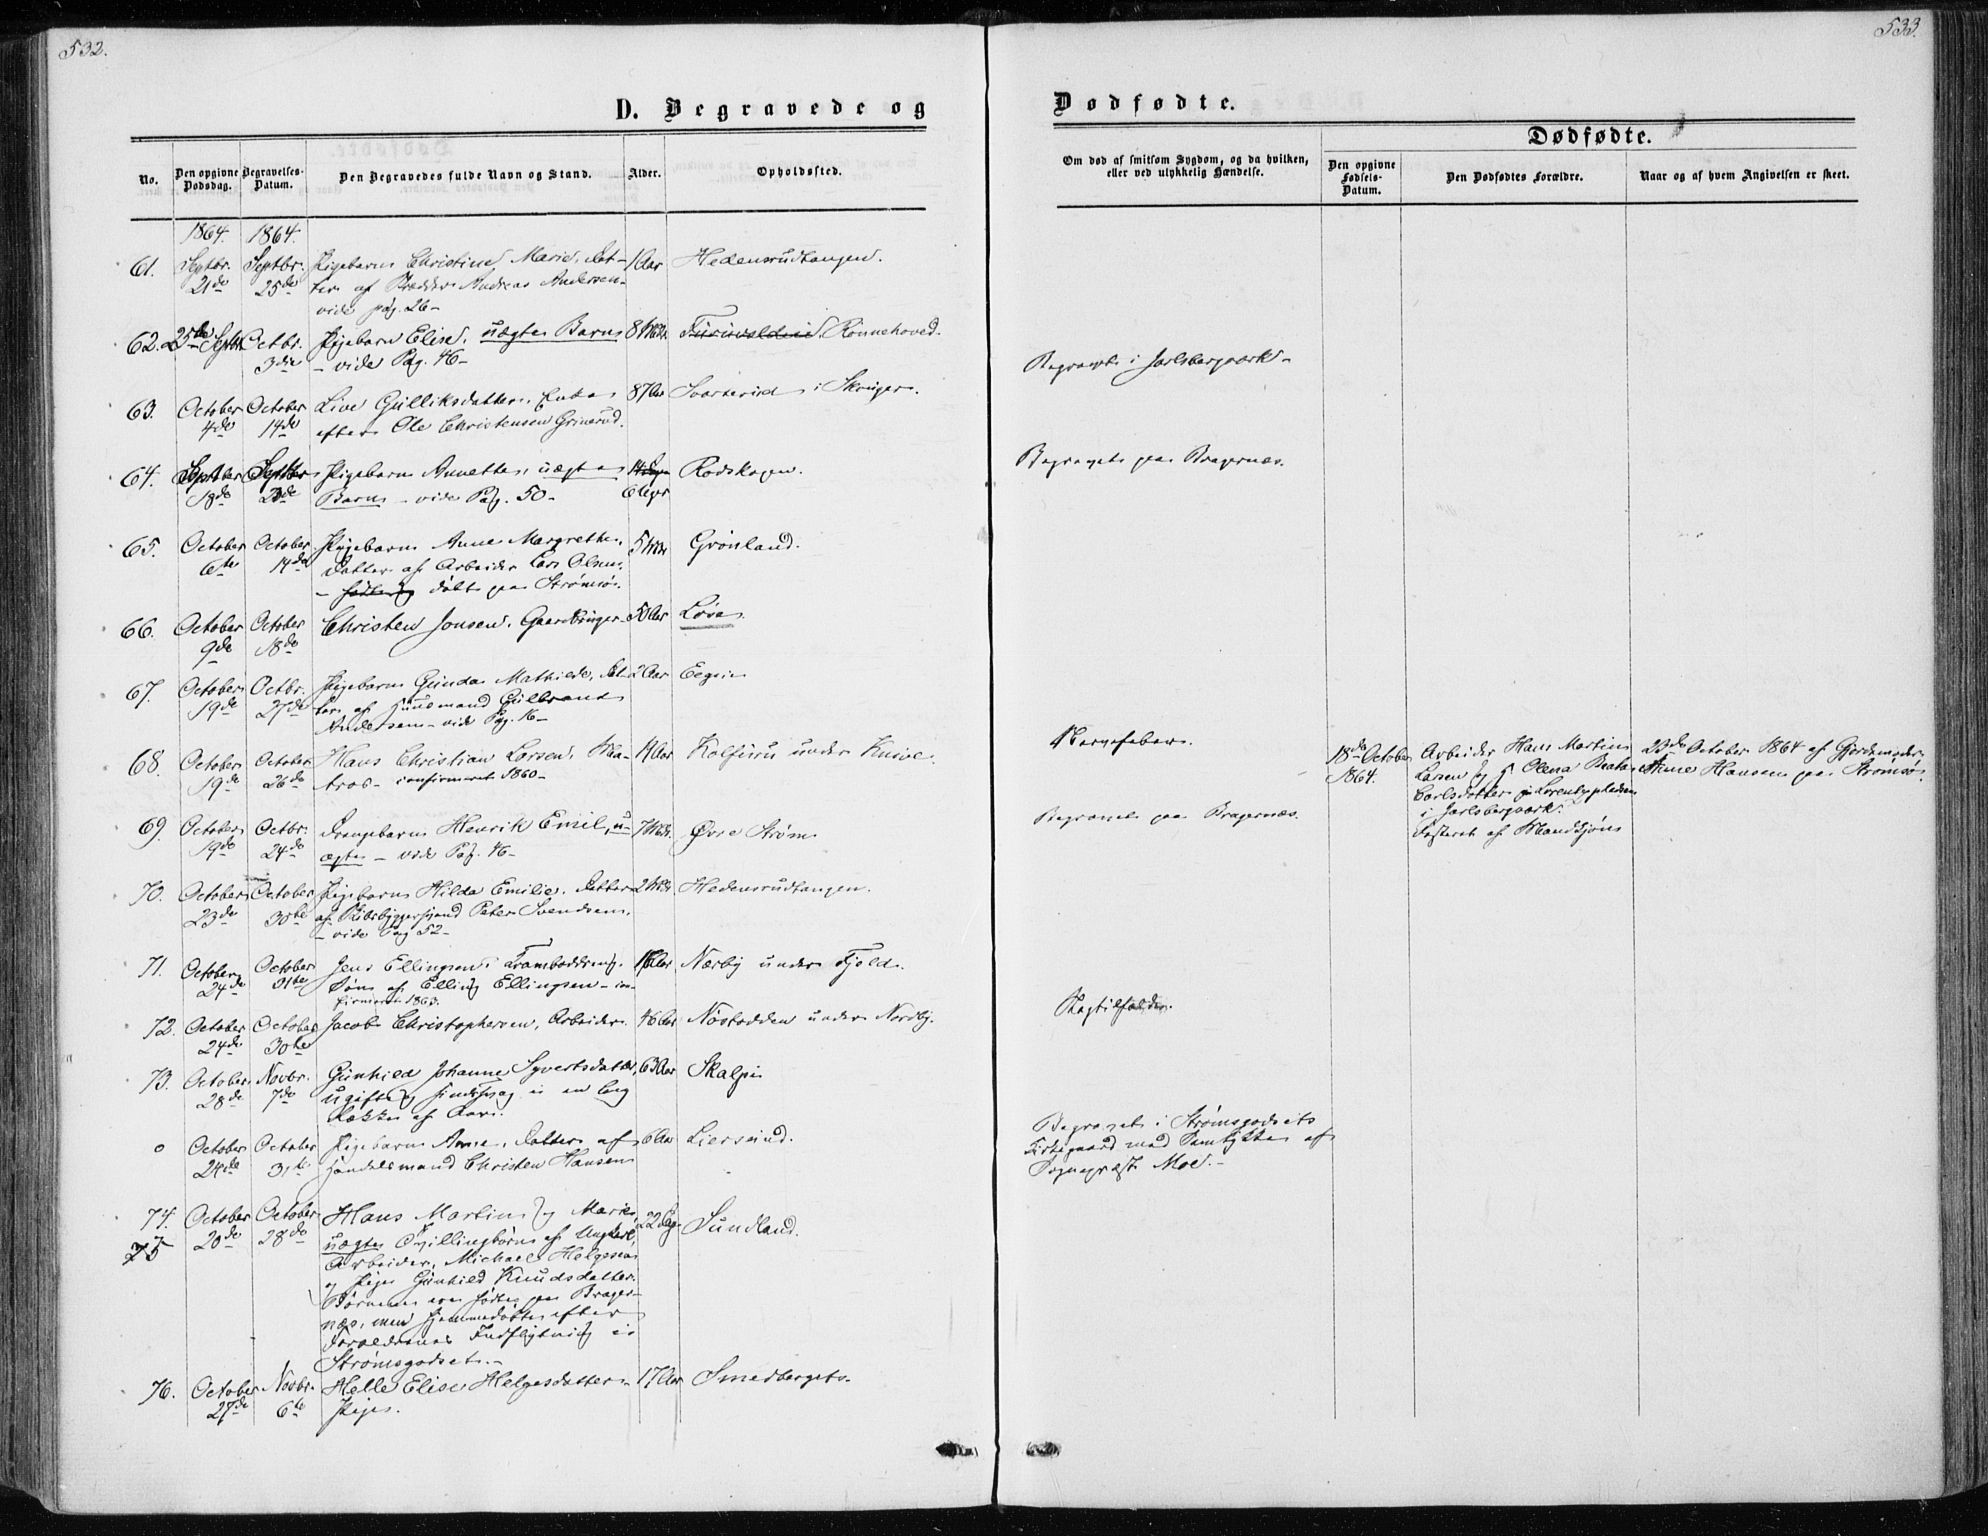 532.
533.
D. Begravede og
Dødfødte.
No.
Den opgivne Dødsdag.
Begravelses-Datum.
Den Begravedes fulde Navn og Stand.
Alder.
Opholdssted.
Om død af smitsom Sygdom, og da hvilken, eller ved ulykkelig Hændelse.
Dødfødte.
Den opgivne Fødsels-Datum.
Den Dødfødtes Forældre.
Naar og af hvem Angivelsen er skeet.
1864. 1864.
61. Septbr. Septbr. Pigebarn Christine Marie, Dat- 1 Aar Hedensrudtangen.
21de 25de ter af Andreas Andersen
vide pag. 26-
62. 25de Septbr. Octbr. Pigebarn Elise, uægte Barn 8 Rønnehoved.
3die - vide Pag. 46- Begravet i Jarlsbergværk-
63. October October Live Gulliksdatter, Enke 87 Aar i Skouger.
4de 14de efter Ole Christensen Grinerud.
64. Septber Septber Pigebarn Annette, uægte 14 Dage Rødskogen. Begravet paa Bragernæs.
18de 23de Barn - vide Pag. 50- 6 Uger
65. October October Pigebarn Anne Margrethe, 5 Grønland.
6te 14de Datter af Arbeider Lars Olsen,
- født og døbt paa Strømsø.
66. October October Christen Jonsen, Gaardbruger 50 Aar Løva.
9de 18de
67. October Octbr. Pigebarn Gunda Mathilde, Dat- 2 Aar
19de 27de ter af Huusmand Gulbrand
Andersen - vide Pag. 16-
68. October October Hans Christian Larsen, Ma- Kolfuru under Knive. Nervefeber.
19de 26de tros - confirmeret 1860-
18de October Arbeider Hans Martin 23de October 1864 af Gjordemoder
1864. Larsen og H Olena Beate Anne Hansen paa Strømsø.
Carlsdatter
i Jarlsbergværk.
69. October Octbr. Drengebarn Henrik Emil, u- 7 Øvre Strøm Begravet paa Bragernæs.
19de 24de ægte - vide Pag. 46-
70. October October Pigebarn Hilda Emilie, Datter 2 Hedensrudtangen.
23de 30te af Skibsbyggermand Peter Svendsen,
- vide Pag 52-
71. October October Jens Ellingsen, 16 Aar Nærby under Fjeld.
24de 31te Søn af Elling Ellingsen - con-
firmeret 1863.
72. October October Jacob Christophersen, Arbeider. 46 Aar Nøstodden under Nordby. Slagtilfælde.
24de 30te
73. October Novbr. Gunhild Johanne Syvertsdatter, 63 Aar Skalpe
28de 7de ugift og sindssvag i en lang
Række af Aar.
o October October Pigebarn Anna, Datter af 6 Aar Lierstrand. Begravet i Strømsgodsets
24de 31te Handelsmand Christen Hansen Kirkegaard med Samtykke af
Sognepræst Moe.-
74. October October Hans Martin og Marie, 22 Dage Sundland.
75 20de 28de uægte Tvillingbørn af Ungkarl,
Arbeider, Michael Helgesen
og Pige Gunhild Knudsdatter.
Børnene ere fødte paa Brager-
næs, men hjemmedøbte efter
Forældrenes Indflytning i
Strømsgodset.-
76. October Novbr. Helle Elise Helgesdatter 17 Aar Smedberget.
27de 6te Pige.